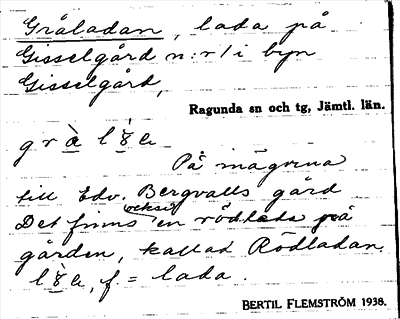 Gråladan, lada på
Gisselgård n:r 1 i byn
Gisselgård,
Ragunda sn och tg, Jämtl. län.
På ägorna
till Edv. Bergvalls gård
Det finns också en rödlada på
gården, kallad Rödladan.
f. = lada.
BERTIL FLEMSTRÖM 1938.